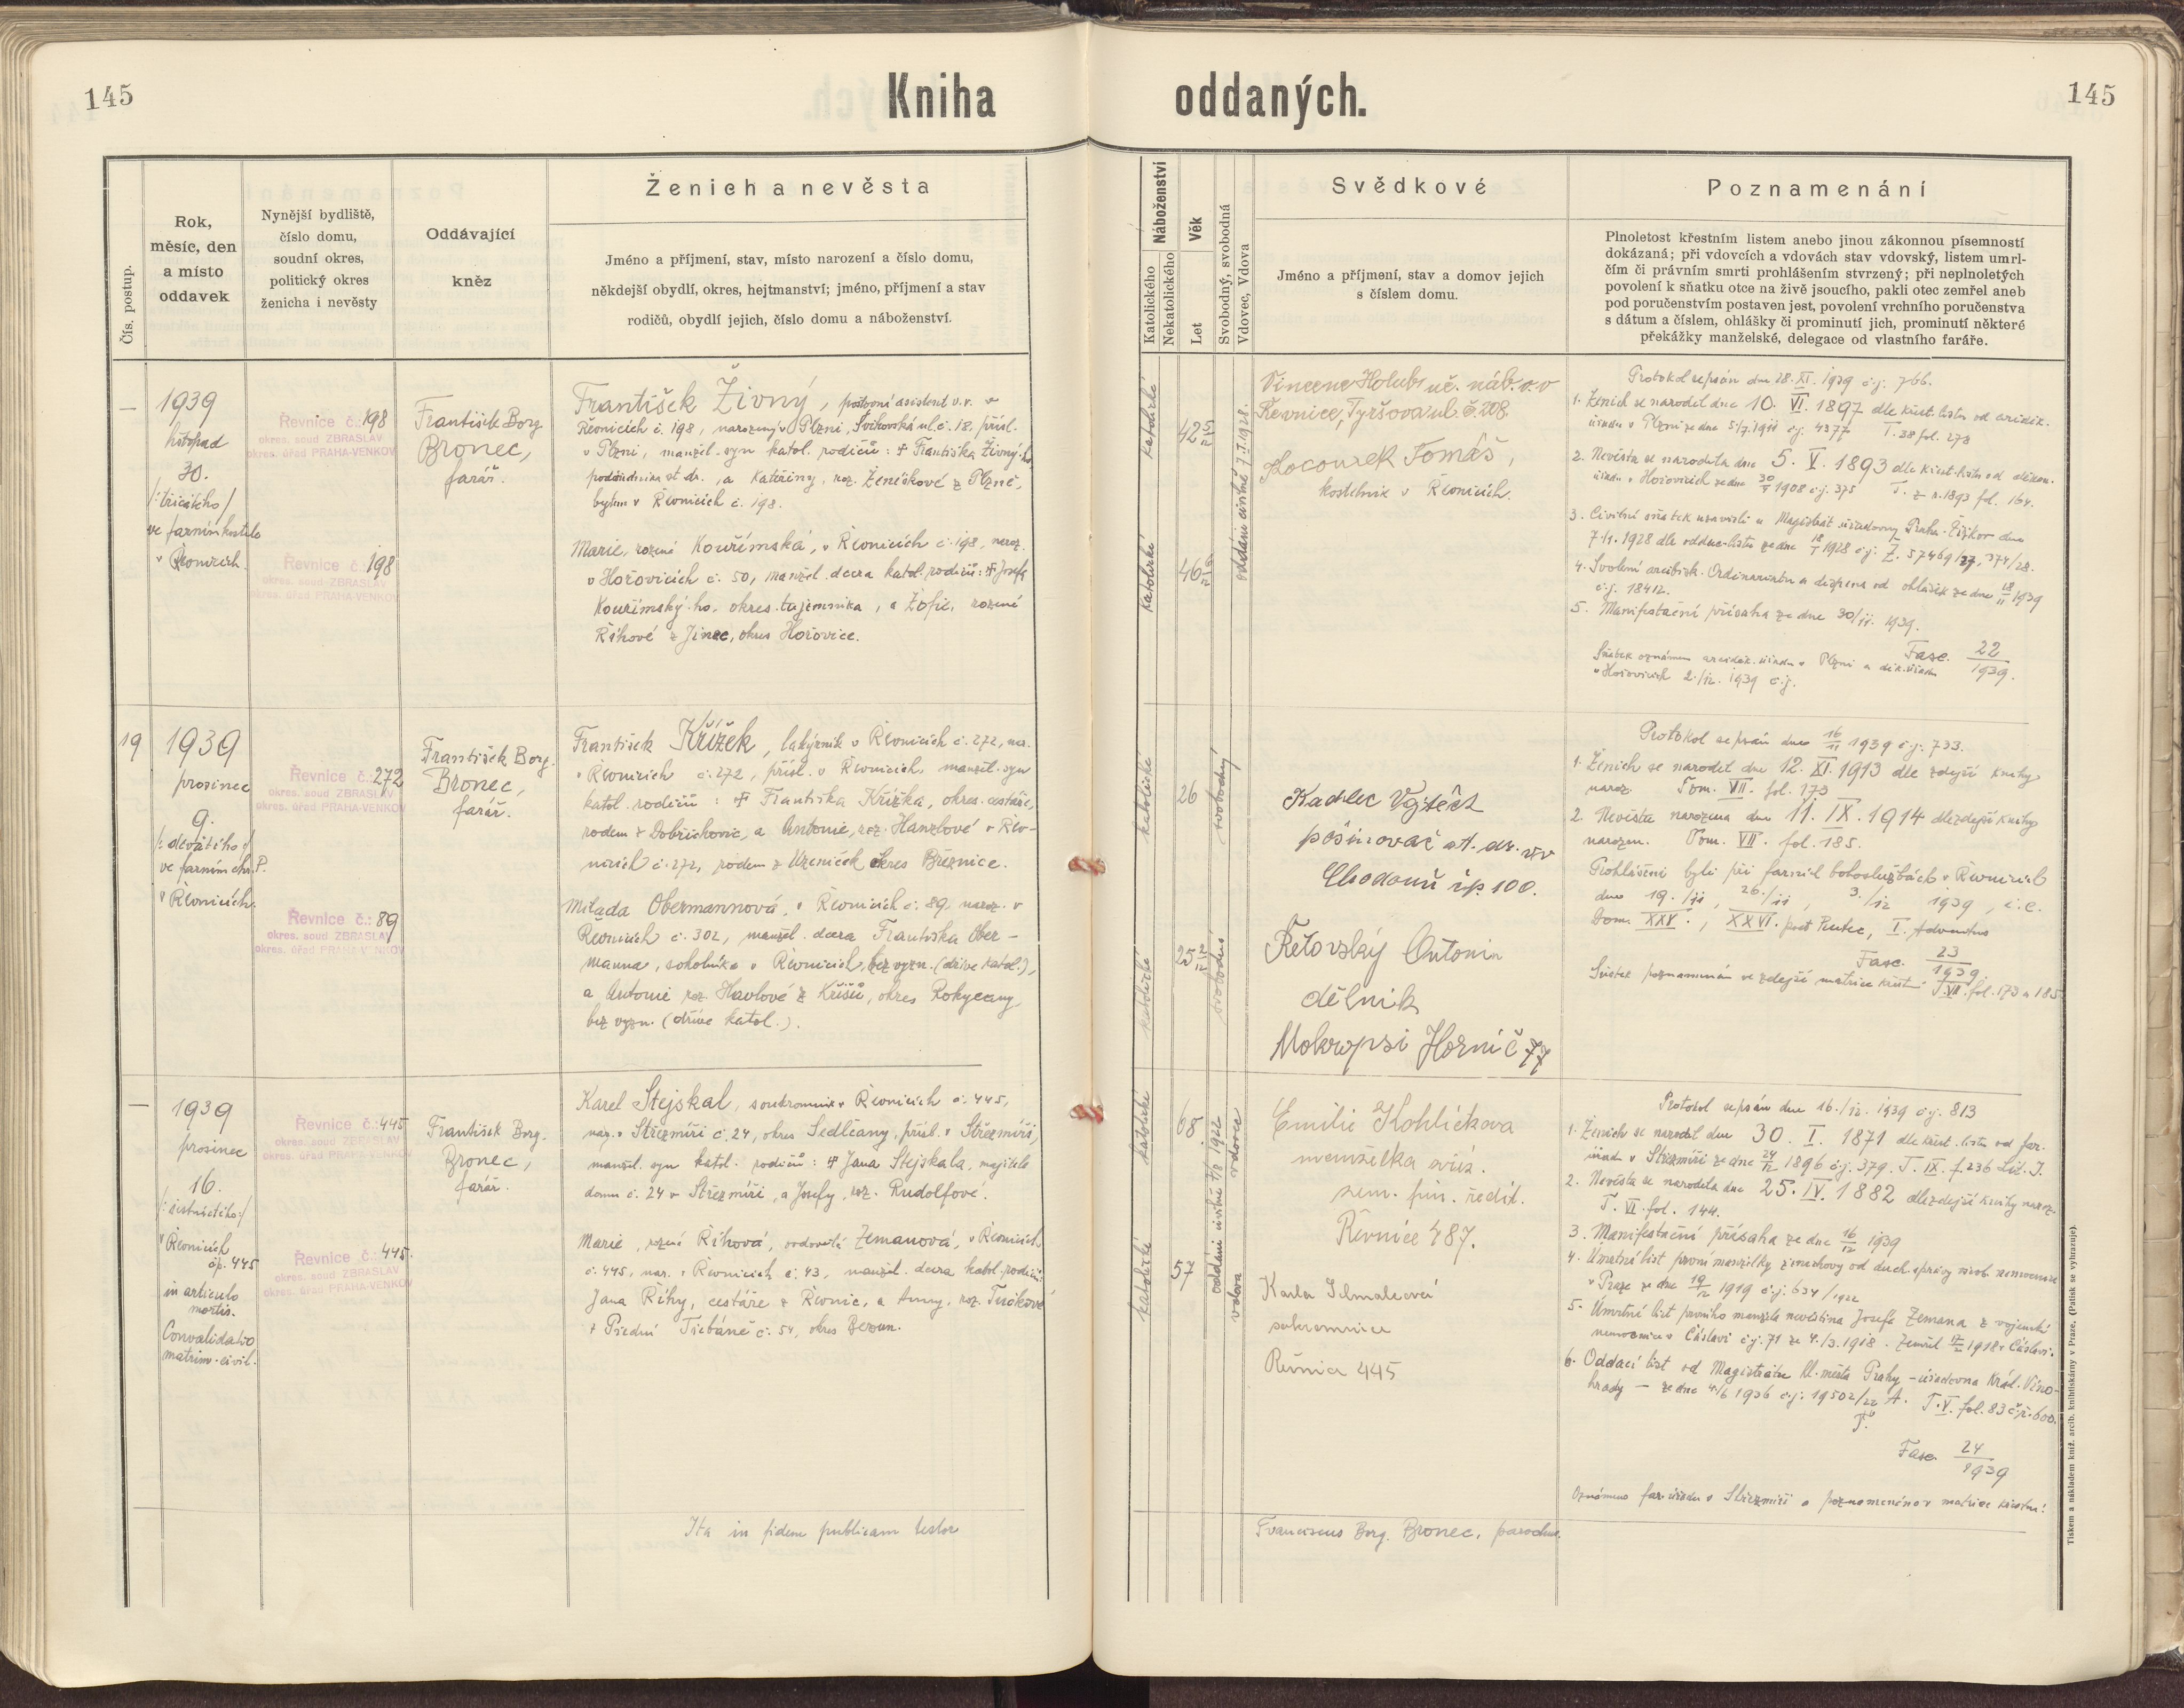 145
Kniha
oddaných.
145
Čís. postup.
Rok,
měsíc, den
a místo
oddavek
Nynější bydliště,
číslo domu,
soudní okres,
politický okres
ženicha i nevěsty
Oddávající
kněz
Ženich a nevěsta
Jméno a příjmení, stav, místo narození a číslo domu,
někdejší obydlí, okres, hejtmanství; jméno, příjmení a stav
rodičů, obydlí jejich, číslo domu a náboženství.
Náboženství
Katolického
Nekatolického
Věk
Let
Svobodný, svobodná
Vdovec, Vdova
Svědkové
Jméno a příjmení, stav a domov jejich
s číslem domu.
Poznamenání
Plnoletost křestním listem anebo jinou zákonnou písemností
dokázaná; při vdovcích a vdovách stav vdovský, listem umrl-
čím či právním smrti prohlášením stvrzený; při neplnoletých
povolení k sňatku otce na živě jsoucího, pakli otec zemřel aneb
pod poručenstvím postaven jest, povolení vrchního poručenstva
s dátum a číslem, ohlášky či prominutí jich, prominutí některé
překážky manželské, delegace od vlastního faráře.
—
1939
listopad
30.
/:třicátého/
ve farním kostele
v Řevnicích.
Řevnice č.: 198
okres. soud ZBRASLAV
okres. úřad PRAHA-VENKOV
Řevnice č.: 198
okres. soud ZBRASLAV
okres. úřad PRAHA-VENKOV
František Borg.
Bronec,
farář.
František Živný, poštovní asistent v.v. v
Řevnicích č. 198, narozený v Plzni, ul. č. 18, přísl.
v Plzni, manžel. syn katol. rodičů: † Františka Živný-ho
podúředníka st. dr., a Kateřiny, roz. Ženíškové z Plzně,
bytem v Řevnicích č. 198.
Marie, rozená Kouřimská, v Řevnicích č. 198, naroz.
v Hořovicích č. 50, manžel. dcera katol. rodičů: † Josefa
Kouřimský-ho, okres. tajemníka, a Žofie, rozené
Říhové z Jinec, okres Hořovice.
katolické
katolické
42 5/12
46 6/12
oddáni civilně 7.I.1928.
Vincenc Holub uč. náb. v.v
Řevnice, Tyršova ul. č. 208.
Kocourek Tomáš,
kostelník v Řevnicích.
Protokol sepsán dne 28. XI. 1939 č.j. 766.
1. Ženich se narodil dne 10. VI. 1897 dle křest. listu od arciděk.
úřadu v Plzni ze dne 5/7.1911 č.j. 4377 T. 38 fol. 273
2. Nevěsta se narodila dne 5. V. 1893 dle křest. listu od děkan.
úřadu v Hořovicích ze dne 30/5 1908 č.j. 375 T. z r. 1893 fol. 164.
3. Civilní sňatek uzavřeli u Magistrát. úřadovny Praha-Žižkov dne
7./1. 1928 dle oddac. listu ze dne 18/1 1928 č.j. Z. 57469/27, 374/28.
4. Svolení arcibisk. Ordinariátu a dispens od ohlášek ze dne 18/11 1939
č.j. 18412.
5. Manifestační přísaha ze dne 30/11. 1939.
Fasc. 22/1939.
Sňatek oznámen arciděk. úřadu v Plzni a děk. úřadu
v Hořovicích 2./12. 1939 č.j.
19
1939
prosinec
9.
/:devátého:/
ve farním chr. P.
v Řevnicích.
Řevnice č.: 272
okres. soud ZBRASLAV
okres. úřad PRAHA-VENKOV
Řevnice č.: 89
okres. soud ZBRASLAV
okres. úřad PRAHA-VENKOV
František Borg.
Bronec,
farář.
František Křížek, lakýrník v Řevnicích č. 272, nar.
v Řevnicích č. 272, přísl. v Řevnicích, manžel. syn
katol. rodičů: † Františka Křížka, okres. cestáře,
rodem z Dobřichovic, a Antonie, roz. Hanzlové v Řev-
nicích č. 272, rodem z Uzeniček okres Březnice.
Milada Obermannová, v Řevnicích č. 89, naroz. v
Řevnicích č. 302, manžel. dcera Františka Ober-
manna, v Řevnicích, bez vyzn. (dříve katol.),
a Antonie roz. Havlové z Kříšů, okres Rokycany
bez vyzn. (dříve katol.).
katolické
katolické
26
25 2/12
svobodný
svobodná
Kadlec Vojtěch
pošinovač st. dr. v.v
Chodouň čp. 100.
Řetovský Antonín
dělník
Mokropsi Horní č 77
Protokol sepsán dne 16/11 1939 č.j. 733.
1. Ženich se narodil dne 12. XI. 1913 dle zdejší knihy
naroz. Tom. VII. fol. 173
2. Nevěsta narozena dne 11. IX. 1914 dle zdejší knihy
narozen. Tom. VII. fol. 185.
Prohlášeni byli při farních bohoslužbách v Řevnicích
dne 19./11, 26./11, 3./12 1939, i.e.
Dom. XXV., XXVI. post Pentec, I. Adventus
Fasc. 23/1939
Sňatek poznamenán ve zdejší matrice křest. T. VII. fol. 173 a 185
—
1939
prosinec
16.
/:šestnáctého:/
v Řevnicích
čp. 445
in articulo
mortis.
Convalidatio
matrim. civil.
Řevnice č.: 445
okres. soud ZBRASLAV
okres. úřad PRAHA-VENKOV
Řevnice č.: 445.
okres. soud ZBRASLAV
okres. úřad PRAHA-VENKOV
František Borg.
Bronec,
farář.
Karel Stejskal, soukromník v Řevnicích č. 445,
nar. v Střezmíři č. 24, okres Sedlčany, přísl. v Střezmíři,
manžel. syn katol. rodičů: † Jana Stejskala, majitele
domu č. 24 v Střezmíři, a Josefy, roz. Rudolfové.
Marie, rozená Říhová, ovdovělá Zemanová, v Řevnicích
č. 445, nar. v Řevnicích č. 43, manžel. dcera katol. rodičů:
Jana Říhy, cestáře z Řevnic, a Anny, roz.
z Přední Třebáně č. 54, okres Beroun.
katolické
katolické
68
57
oddáni civilně 1922
vdovec
vdova
Emilie Kohlíčková
manželka
zem. fin. ředit.
Řevnice 487.
Karla
soukromnice
Řevnice 445
Protokol sepsán dne 16./12. 1939 č.j. 813
1. Ženich se narodil dne 30. I. 1871 dle křest. listu od far.
úřadu v Střezmíři ze dne 24/12 1896 č.j. 379. T. IX. f. 236 Lit. J.
2. Nevěsta se narodila dne 25. IV. 1882 dle zdejší knihy naroz.
T. VI. fol. 144.
3. Manifestační přísaha ze dne 16/12 1939
4. Úmrtní list první manželky ženichovy od duch. správy všeob. nemocnice
v Praze ze dne 19/12 1919 č.j. 634/1922
5. Úmrtní list prvního manžela nevěstina Josefa Zemana z vojenské
nemocnice v Čáslavi č.j. 71 ze 4./3. 1918. Zemřel 1918 v Čáslavi.
6. Oddací list od Magistrátu hl. města Prahy – úřadovna Král. Vino-
hrady – ze dne 4/6 1936 č.j. 19502/22 A. T. V. fol. 83 č.ř. 600.
Fasc. 24/1939
Oznámeno far. úřadu v Střezmíři a poznamenáno v matrice křestní!
Ita in fidem publicam testor
Franciscus Borg. Bronec, parochus.
Tiskem a nákladem kníž. arcib. knihtiskárny v Praze. (Patisk se vyhrazuje).